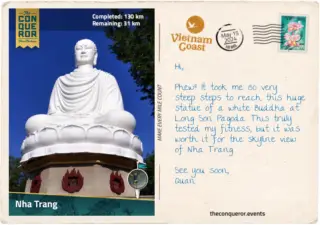 THE
CONQUEROR
Completed: 130 km
Remaining: 31 km
Nha Trang
MAKE EVERY MILE COUNT
Vietnam
Coast
May 15
2024
Hi,
Phew! It took me so very
steep steps to reach, this huge
statue of a white Buddha at
Long Son Pagoda. This truly
tested my fitness, but it was
worth it for the skyline view
of Nha Trang.
See you soon,
Quan.
theconqueror.events